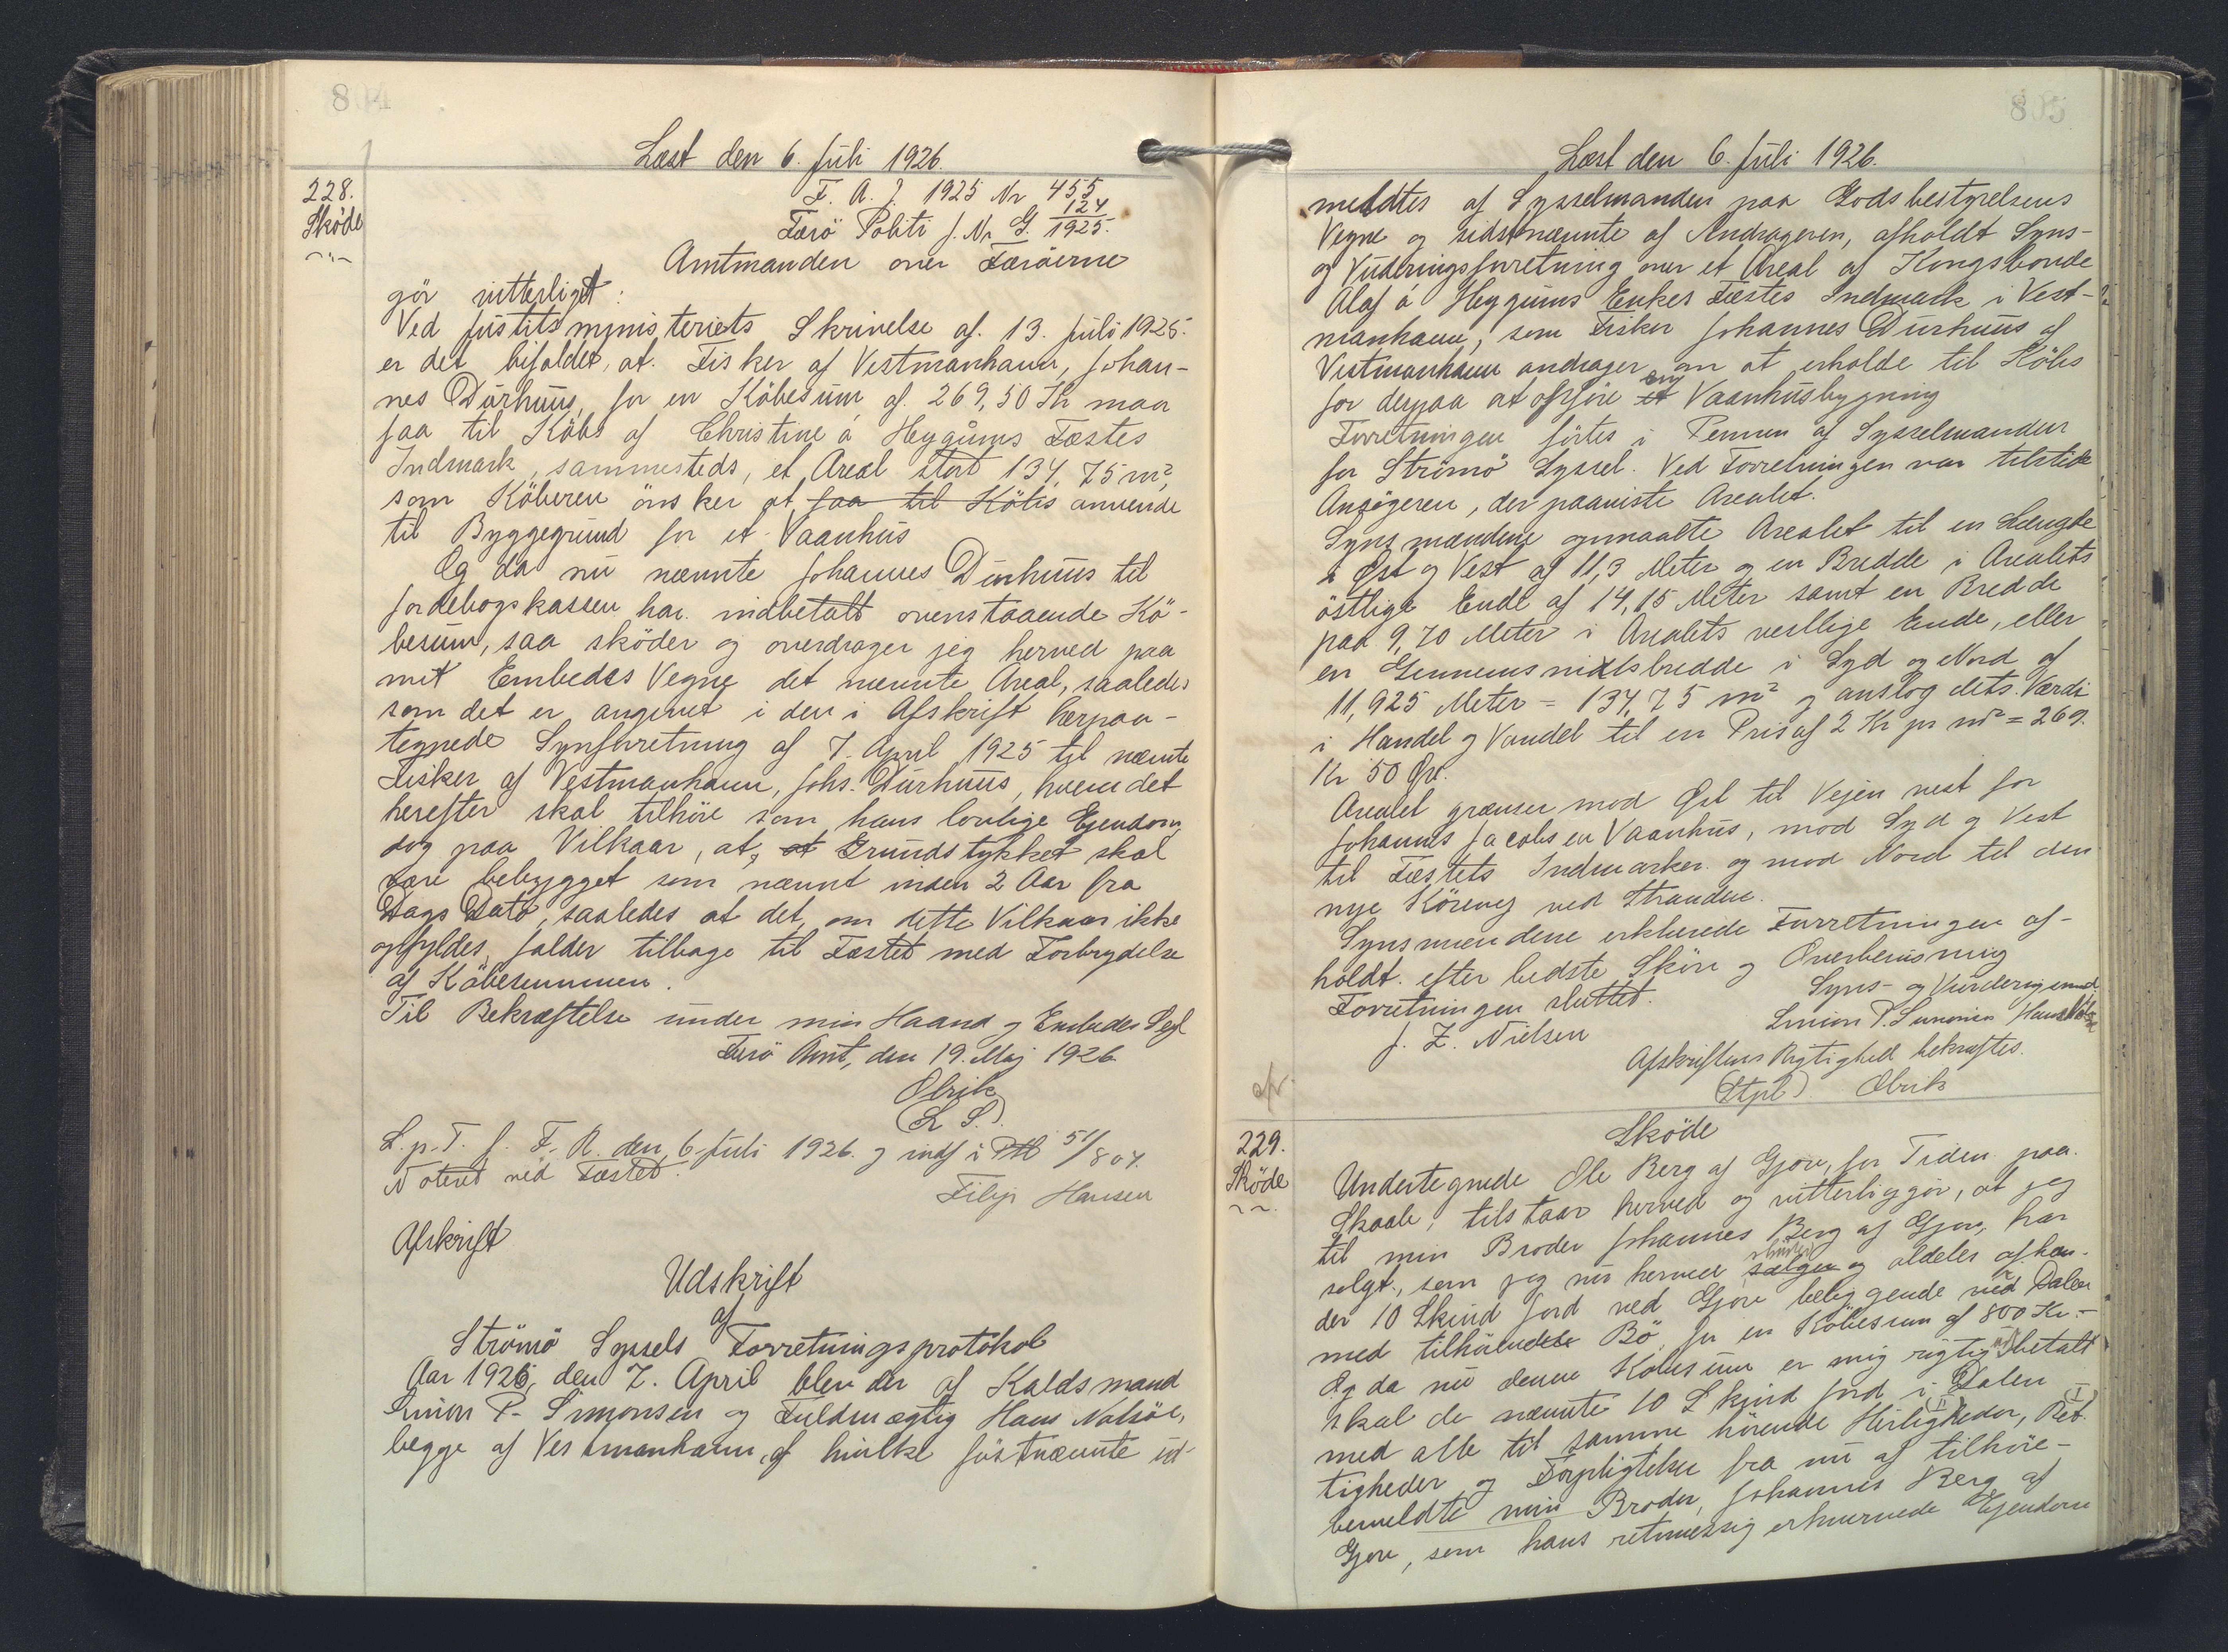 804
Læst den 6. Juli 1926.
228.
Sköde
F. A. J. 1925 Nr 455
Færö Politi J. Nr G. 124/1925.
Amtmanden over Færöerne
gör vitterligt:
Ved Justitsministeriets Skrivelse af. 13. Juli 1925.
er det bifaldet, at. Fisker af Vestmanhavn, Johan-
nes Durhuus, for en Köbesum af. 269,50 Kr maa
faa til Köbs af Christine á Heygums Fæstes
Indmark, sammesteds, et Areal stort 134,75 m²,
som Köberen önsker at faa til Köbs anvende
til Byggegrund for et Vaanhus
Og da nu nævnte Johannes Durhuus til
Jordebogskassen har indbetalt ovenstaaende Kö-
besum, saa sköder og overdrager jeg herved paa
mit Embedes Vegne det nævnte Areal, saaledes
som det er angivet i den i Afskrift herpaa-
tegnede Synforretning af 7. April 1925 til nævnte
Fisker af Vestmanhavn, Johs. Durhuus, hvem det
herefter skal tilhöre som hans lovlige Ejendom,
dog paa Vilkaar, at, at Grundstykket skal
være bebygget som nævnt inden 2 Aar fra
Dags Dato, saaledes at det, om dette Vilkaar ikke
opfyldes, falder tilbage til Fæstet med Forbrydelse
af Köbesummen.
Til Bekræftelse under min Haand og Embedes Segl
Færö Amt, den 19. Maj 1926
Olrik
(L. S.)
L. p. T. f. F. R. den 6. Juli 1926. og indf i Ptl 51/804.
Noteret ved Fæstet.
Filip Hansen
Afskrift
Udskrift
af
Strömö Syssels Forretningsprotokol
Aar 1925, den 7. April blev der af Kaldsmand
Simon P. Simonsen og Fuldmægtig Hans Nolsöe,
begge af Vestmanhavn, af hvilke förstnævnte ud-
805
Læst den 6. Juli 1926.
meldtes af Sysselmanden paa Godsbestyrelsens
Vegne og sidstnævnte af Andrageren, afholdt Syns-
og Vuderingsforretning over et Areal af Kongsbonde
Alaf á Heygums Enkes Fæstes Indmark i Vest-
manhavn, som Fisker Johannes Durhuus af
Vestmanhavn andrager om at erholde til Köbs
for derpaa at opföre et en Vaanhusbygning
Forretningen förtes i Pennen af Sysselmanden
for Strömö Syssel. Ved Forretningen var tilstede
Ansögeren, der paaviste Arealet.
Synsmændene opmaalte Arealet til en Længde
i Øst og Vest af 11,3 Meter og en Bredde i Arealets
östlige Ende af 14,15 Meter samt en Bredde
paa 9,70 Meter i Arealets vestlige Ende, eller
en Gennemsnitsbredde i Syd og Nord af
11,925 Meter = 134,75 m² og anslog dets Værdi
i Handel og Vandel til en Pris af 2 Kr pr m² = 269.
Kr 50 Øre.
Arealet grænser mod Øst til Vejen vest for
Johannes Jacobsen Vaanhus, mod Syd og Vest
til Fæstets Indmarker og mod Nord til den
nye Körevej ved Stranden.
Synsmændene erklærede Forretningen af-
holdt efter bedste Skön og Overbevisning
Forretningen sluttet.
Syns- og Vurderingsmænd.
J. Z. Nielsen
Simon P. Simonsen Hans Nolsöe
Afskriftens Rigtighed bekræftes.
(Stpl) Olrik
229.
Sköde
Sköde
Undertegnede Ole Berg af Gjov, for Tiden paa
Skaale, tilstaar herved og vitterliggör, at jeg
til min Broder Johannes Berg af Gjov, har
solgt, som jeg nu herved sælger sköder og aldeles afhæn-
der 10 Skind Jord ved Gjov beliggende ved Dalen
med tilhörende Bö for en Köbesum af 800 Kr.-
Og da nu denne Köbesum er mig rigtig udbetalt
skal de nævnte 10 Skind Jord i Dalen
med alle til samme hörende Herligheder, Ret-
tigheder og Forpligtelser fra nu af tilhöre-
bemeldte min Broder, Johannes Berg af
Gjov, som hans retmæssig erhvervede Ejendom